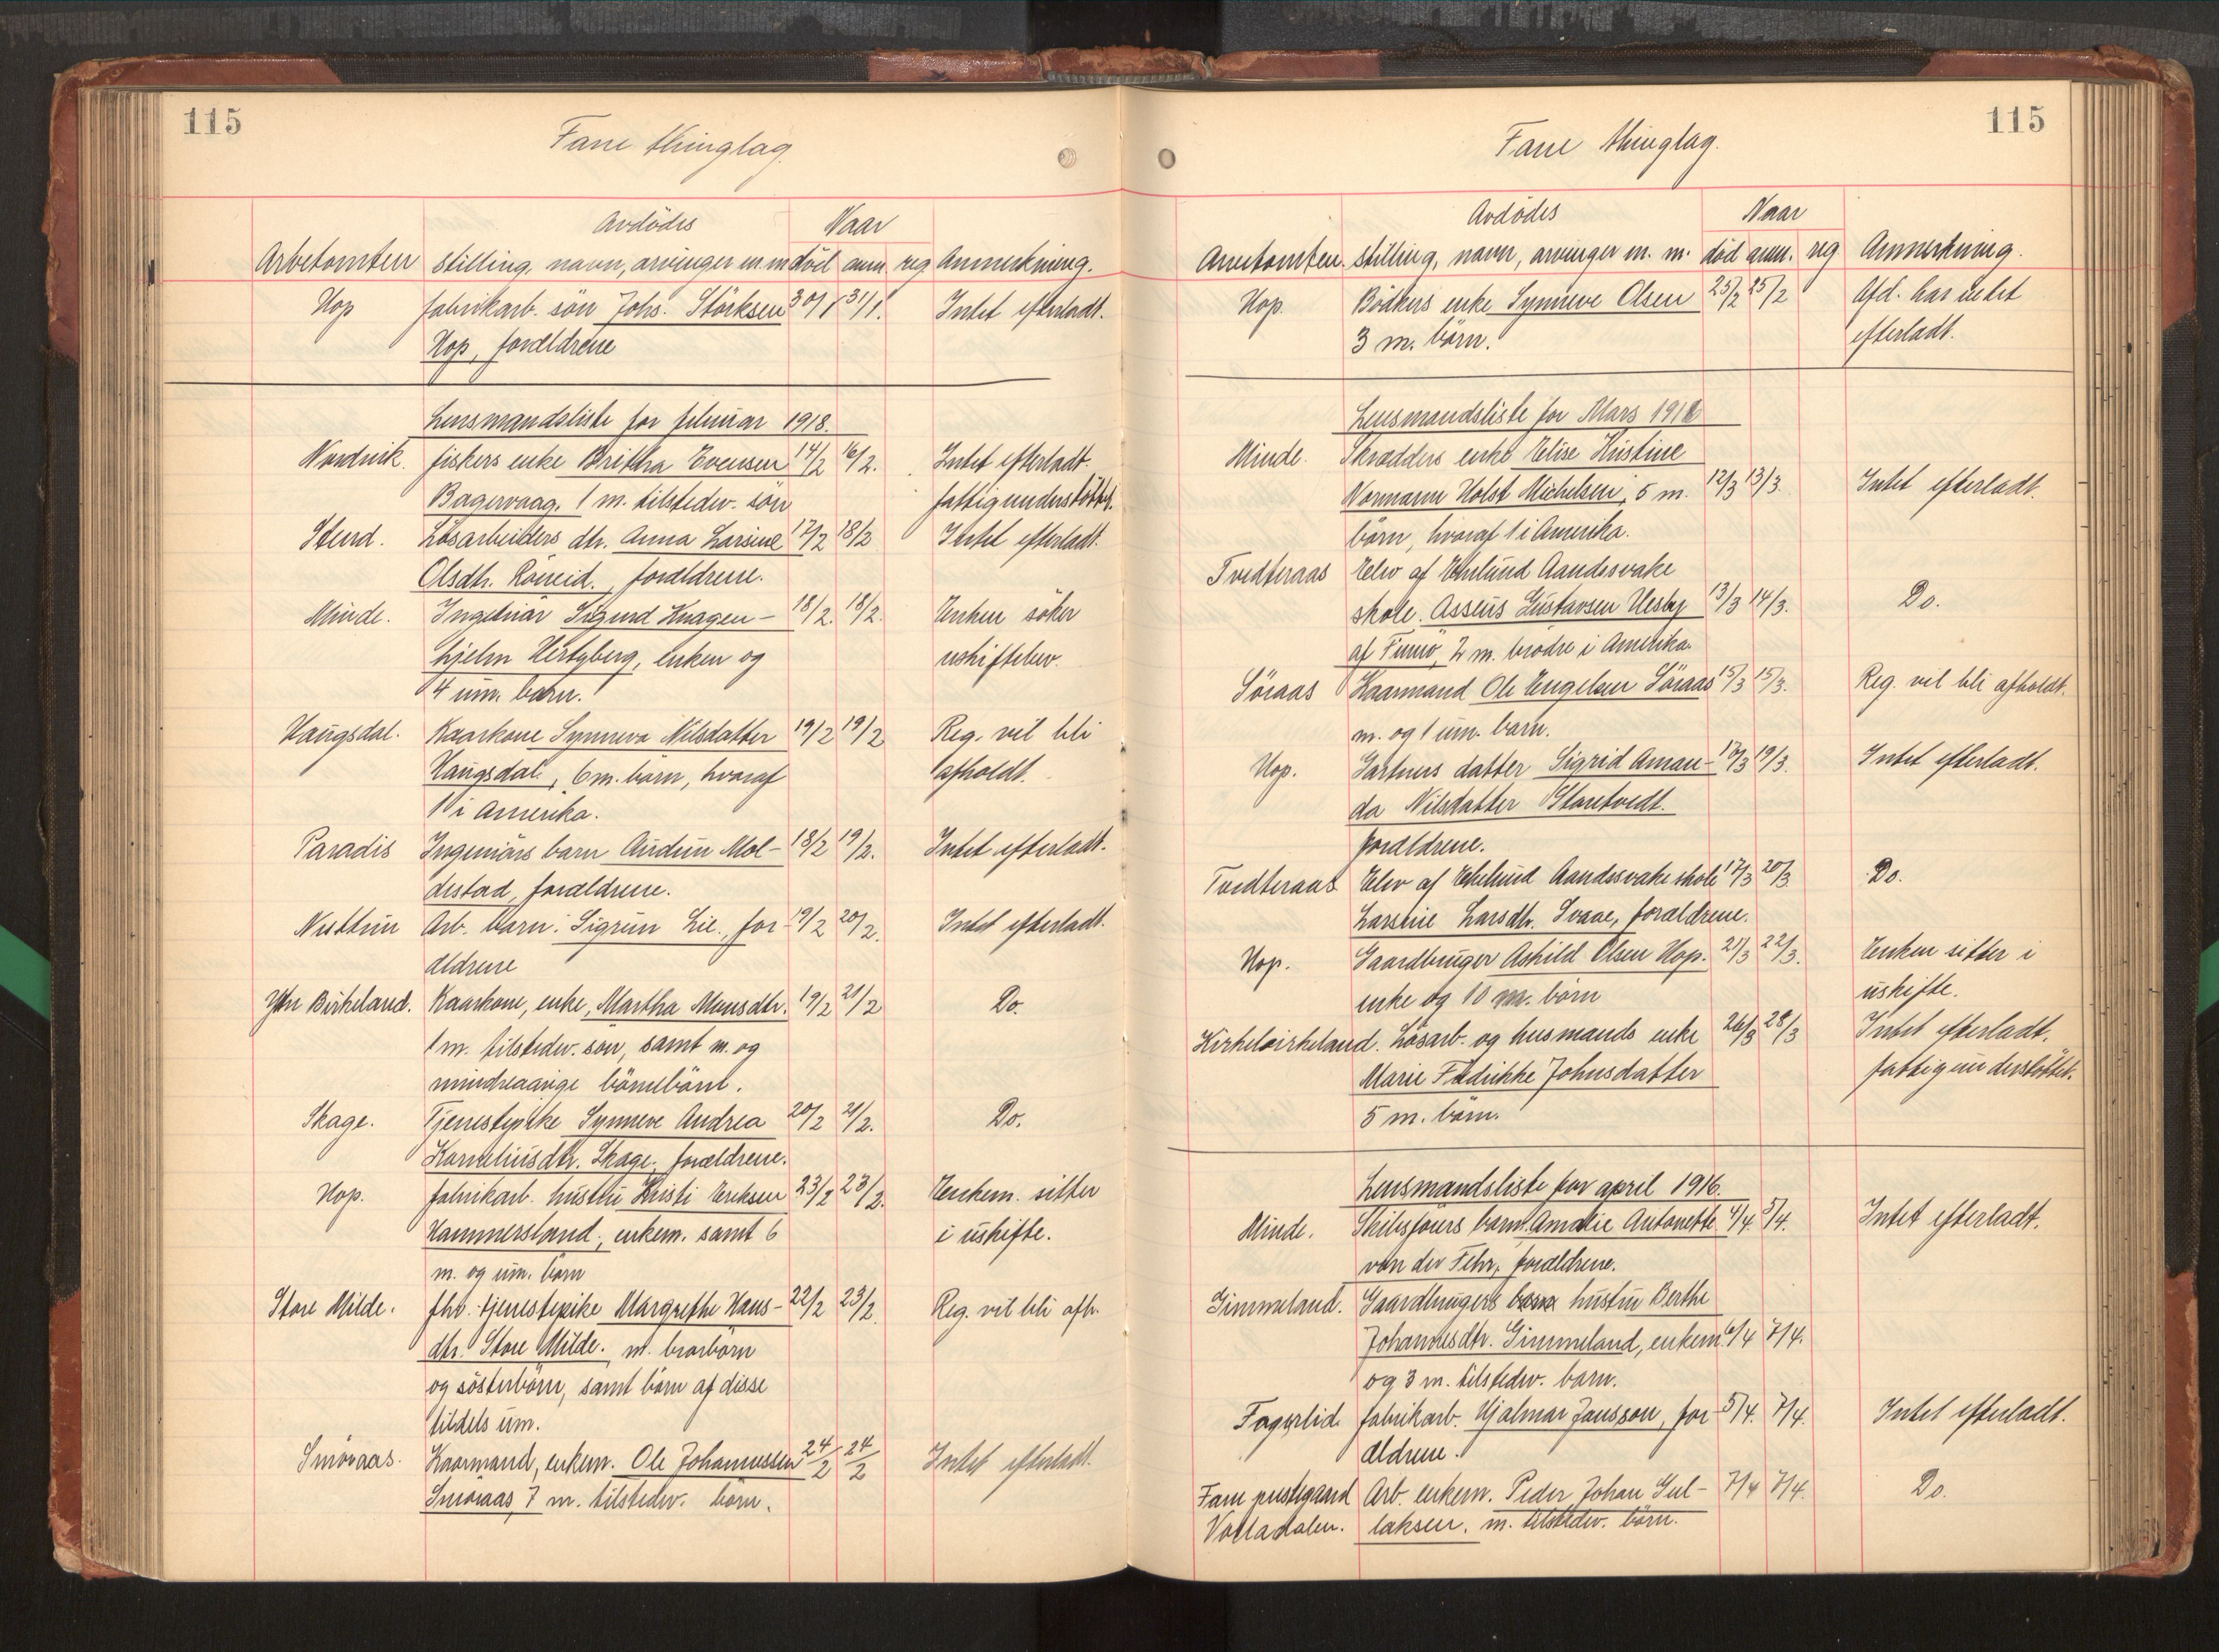 115
Fane thinglag.
Avdödes Naar
Arvetomten stilling, navn, arvinger m. m död anm. reg Anmerkning.
Hop fabrikarb. sön Johs. Störksen 30/1 31/1. Intet efterladt.
Hop, forældrene
Lensmandsliste for februar 1918.
Nordvik. fiskers enke Brithha Evensen 14/2 16/2. Intet efterladt.
Bagervaag. 1 m. tilstedev. sön fattigunderstöttet.
Stend. Lösarbeiders dtr. Anna Larsine 17/2 18/2 Intet efterladt.
Olsdtr. Röineid., forældrene.
Minde. Ingeniör Sigurd Knagen- 18/2. 18/2. Enken söker
hjelm Hertzberg, enken og uskiftebev.
4 um. barn.
Haugsdal. Kaarkone Synneva Nilsdatter 19/2 19/2 Reg. vil bli
Haugsdal, 6 m. börn, hvoraf afholdt.
1 i Amerika.
Paradis Ingeniörs barn Audun Mol- 18/2 19/2. Intet efterladt.
destad, forældrene.
Nesttun Arb. barn: Sigrun Lie., for- 19/2 20/2. Intet efterladt.
ældrene
Ytre Birkeland. Kaarkone, enke, Martha Monsdtr. 19/2 21/2 Do.
1 m. tilstedev. sön, samt m. og
mindreaarige börnebörn.
Skage. Tjenestepike Synneve Andrea 20/2 21/2. Do.
Korneliusdtr. Skage, forældrene.
Hop. fabrikarb. hustru Kristi Eriksen 23/2 23/2. Enkem. sitter
Hammersland, enkem. samt 6 i uskifte.
m. og um. börn
Store Milde. fhv. tjenestepike Margrethe Hans- 22/2 23/2. Reg. vil bli afh.
dtr. Store Milde. m. brorbörn
og sösterbörn, samt börn af disse
tildels um.
Smöraas. Kaarmand, enkem. Ole Johannessen 24/2 24/2 Intet efterladt.
Smöraas, 7 m. tilstedev. börn.
115
Fane thinglag.
Avdödes Naar
Arvetomten. stilling, navn, arvinger m. m. död anm. reg Anmerkning.
Hop. Bödkers enke Synneve Olsen 25/2 25/2 Afd. har intet
3 m. börn. efterladt.
Lensmandsliste for Mars 1916
Minde. Skrædders enke Elise Kristine
Normann Holst Michelsen, 5 m. 12/3 13/3. Intet efterladt.
börn, hvoraf 1 i Amerika.
Tvedteraas Elev af Eklund Aandssvake
skole. Asseus Gustavsen Vesby 13/3 14/3. Do.
af Finnö, 2 m. brödre i Amerika.
Söraas Kaarmand Ole Engelsen Söraas 15/3 15/3. Reg. vil bli afholdt.
m. og 1 um. barn.
Hop. Gartners datter Sigrid Aman- 17/3 19/3. Intet efterladt.
da Nilsdatter Storetvedt.
forældrene.
Tvedteraas Elev af Eklund Aandssvake skole 17/3 20/3. Do.
Larsine Larsdtr. Svaae, forældrene.
Hop. Gaardbruger Askild Olsen Hop. 21/3 22/3. Enken sitter i
enke og 10 m. börn uskifte.
Kirkebirkeland. Lösarb. og husmands enke 26/3 28/3 Intet efterladt.
Marie Fredrikke Johnsdatter fattigunderstöttet.
5 m. börn.
Lensmandsliste for april 1916.
Minde. Skibsförers barn. Amalie Antonette 4/4 5/4. Intet efterladt.
von der Fehr, forældrene.
Gimmeland. Gaardbrugers hustru Berthe
Johannesdtr. Gimmeland, enkem. 6/4 7/4.
og 3 m. tilstedev. barn.
Fagerlid fabrikarb. Hjalmar Jansson, for- 5/4. 7/4. Intet efterladt.
ældrene.
Fane prestegaard Arb. enkem. Peder Johan Gul- 7/4 7/4. Do.
Volladalen. laksen. m. tilstedev. börn.